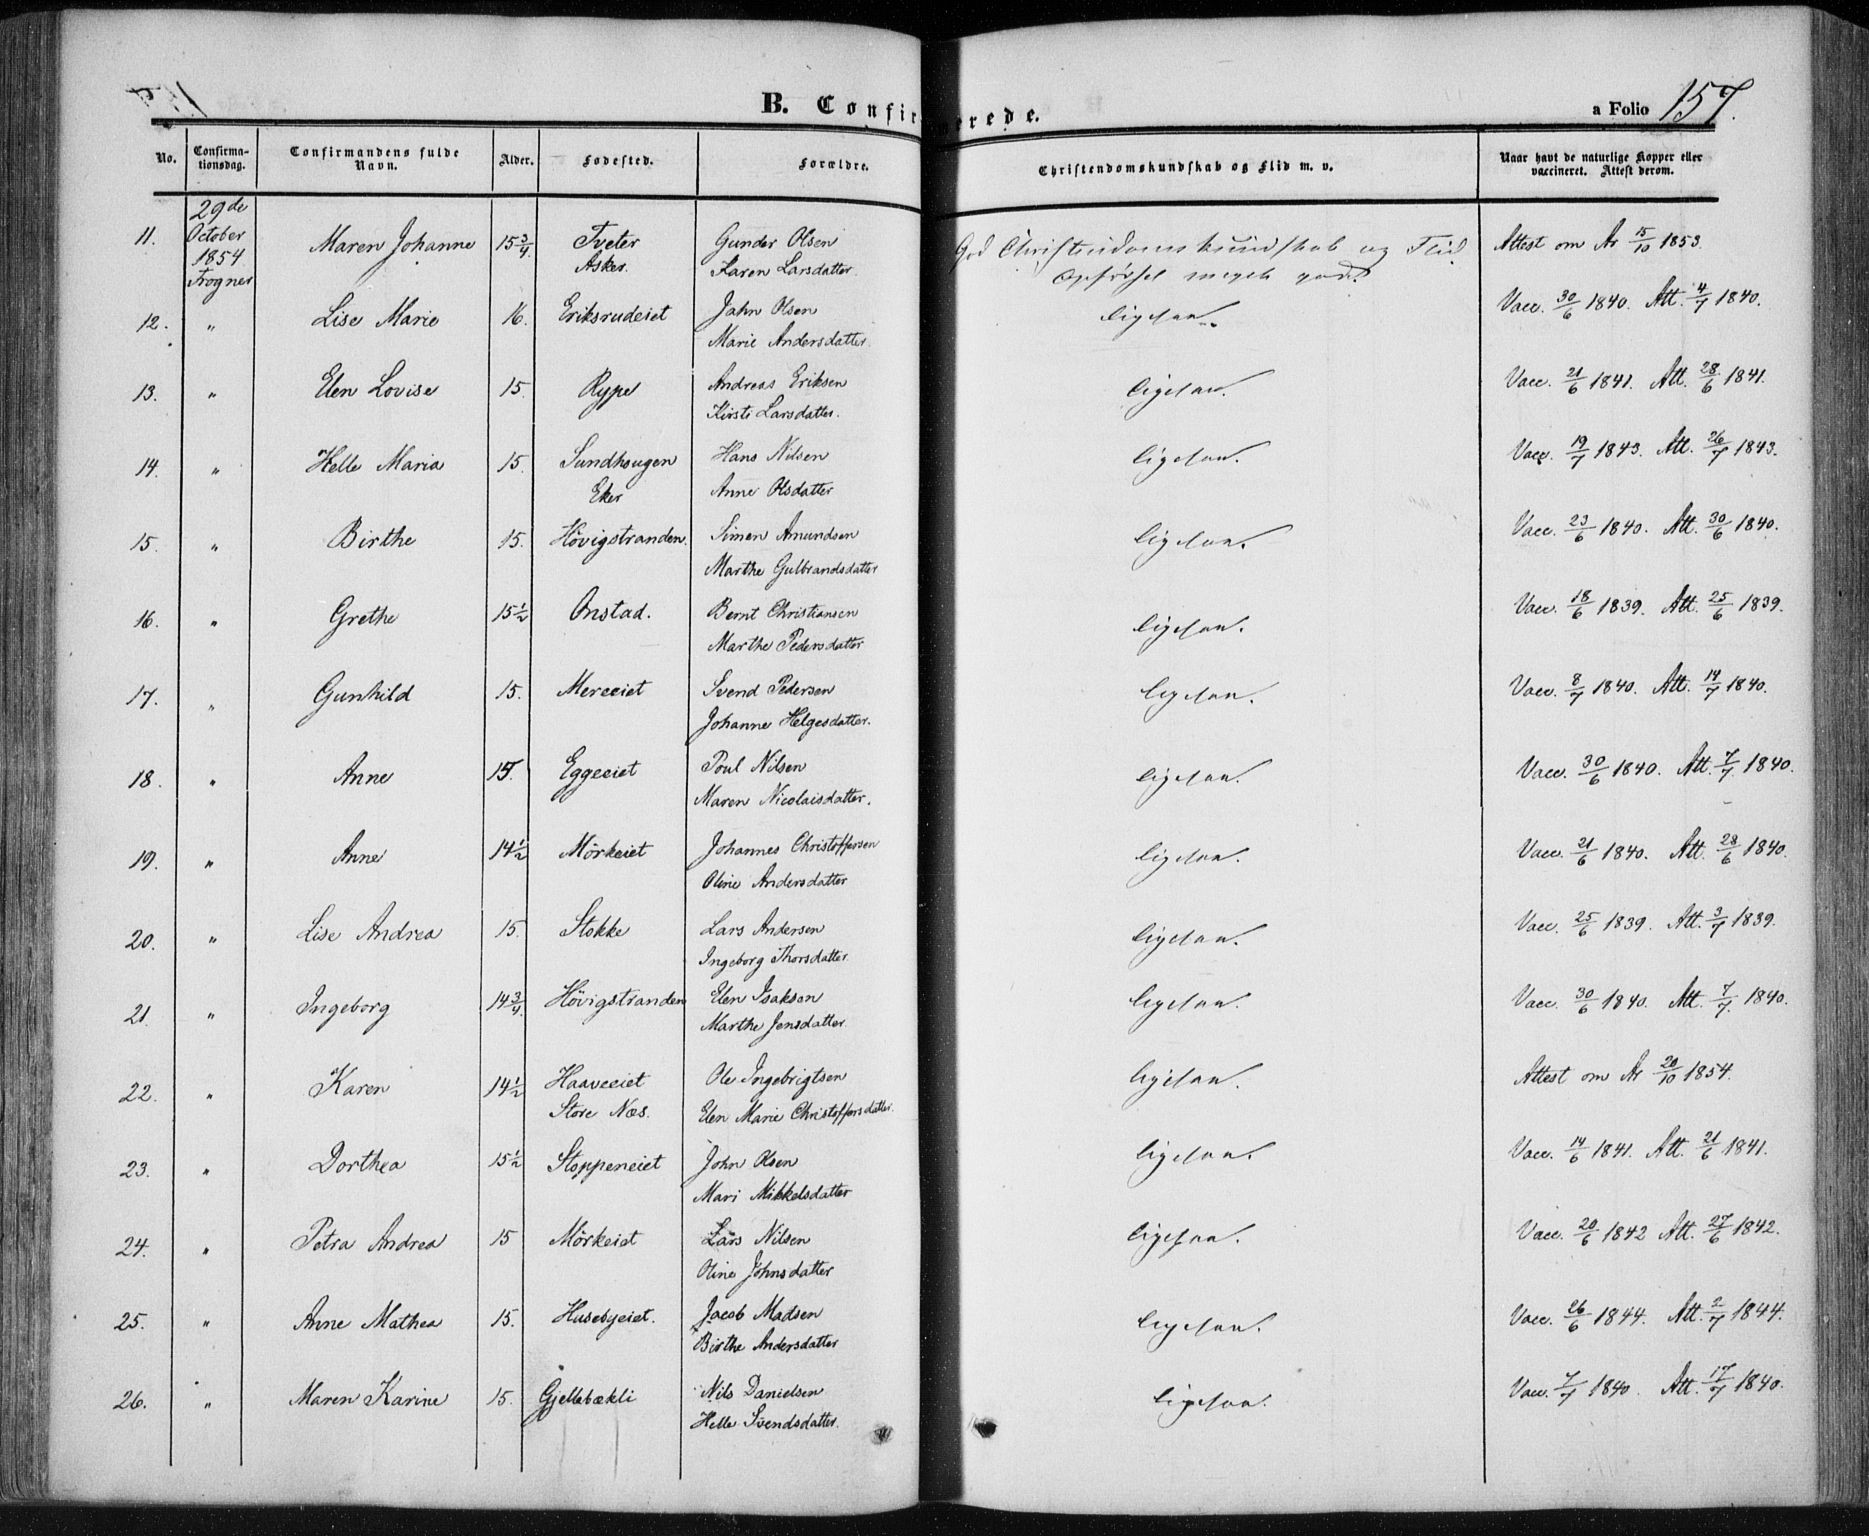 B. Confirmerede.
a Folio 157.
No. Confirma-tionsdag. Confirmandens fulde Navn. Alder. Fødested. Forældre. Christendomskundskab og Flid m. v. Naar havt de naturlige Kopper eller vaccineret. Attest derom.
11. 29de October 1854 Frogner Maren Johanne 15 3/4 Tveter Asker. Gunder Olsen Karen Larsdatter. God Christendomskundskab og Flid Opførsel meget god. Attest om Ar 15/10 1853.
12. " Lise Marie 16. Eriksrudeiet John Olsen Marie Andersdatter. ligesaa. Vacc. 30/6 1840. Att. 4/7 1840.
13. " Elen Lovise 15. Rype Andreas Eriksen Kirsti Larsdatter. ligesaa. Vacc. 21/6 1841. Att. 28/6 1841.
14. " Helle Maria 15. Sundhougen Eker Hans Nilsen Anne Olsdatter ligesaa. Vacc. 19/7 1843. Att. 26/7 1843.
15. " Birthe 15. Hövigstranden. Simen Amundsen Marthe Gulbrandsdatter ligesaa. Vacc. 23/6 1840. Att. 30/6 1840.
16. " Grethe 15 1/2 Onstad. Bernt Christiansen Marthe Pedersdatter ligesaa. Vacc. 18/6 1839. Att. 25/6 1839.
17. " Gunhild 15. Mereeiet Svend Pedersen Johanne Helgesdatter. ligesaa. Vacc. 8/7 1840. Att. 14/7 1840.
18. " Anne 15. Eggeeiet Poul Nilsen Maren Nicolaisdatter. ligesaa. Vacc. 30/6 1840. Att. 7/7 1840.
19. " Anne 14 1/2 Mörkeiet Johannes Christoffersen Oline Andersdatter ligesaa. Vacc. 21/6 1840. Att. 28/6 1840.
20. " Lise Andrea 15. Stokke Lars Andersen Ingeborg Thorsdatter. ligesaa. Vacc. 25/6 1839. Att. 3/7 1839.
21. " Ingeborg 14 3/4. Hövigstranden Elen Isaksen Marthe Jensdatter. ligesaa. Vacc. 30/6 1840. Att. 7/7. 1840.
22. " Karen 14 1/2 Haaveeiet Store Næs. Ole Ingebrigtsen Elen Marie Christoffersdatter. ligesaa. Attest om Ar 20/10 1854.
23. " Dorthea 15 1/2 Stoppeneiet John Olsen Mari Mikkelsdatter ligesaa. Vacc. 14/6 1841. Att. 21/6 1841.
24. " Petra Andrea 15 Mörkeiet Lars Nilsen Oline Johnsdatter ligesaa. Vacc. 20/6 1842 Att. 27/6 1842.
25. " Anne Mathea 15. Husebyeiet. Jacob Madsen Birthe Andersdatter ligesaa. Vacc. 26/6 1844. Att. 2/7 1844.
26. " Maren Karine 15. Gjellebækli Nils Danielsen Helle Svendsdatter. ligesaa. Vacc. 7/7 1840. Att. 17/7 1840.